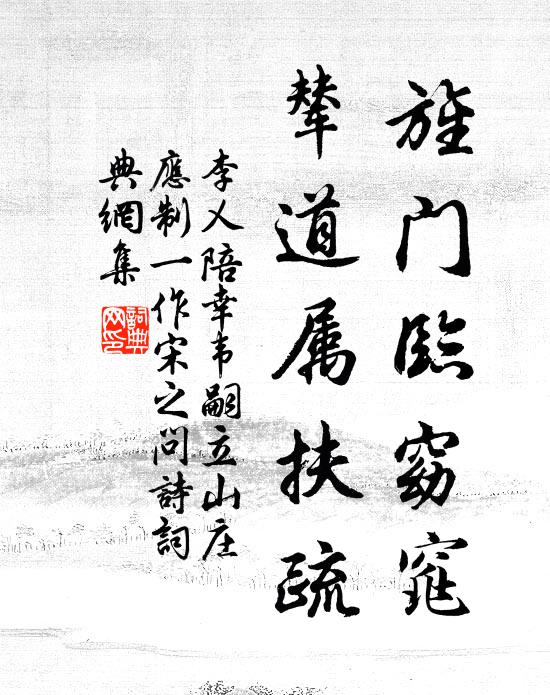 旌门臨窈窕
輦道属扶疏
李乂陪幸韦嗣立山庄
應制一作宋之问詩詞
典網集
詞典
网印